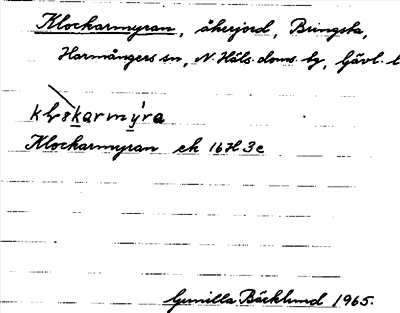 Klockarmyran, åkerjord, Bringsta,
Harmångers sn, N. Häls. doms. tg, Gävl. l
Klockarmyran ek 16H3e
Gunilla Bäcklund 1965.